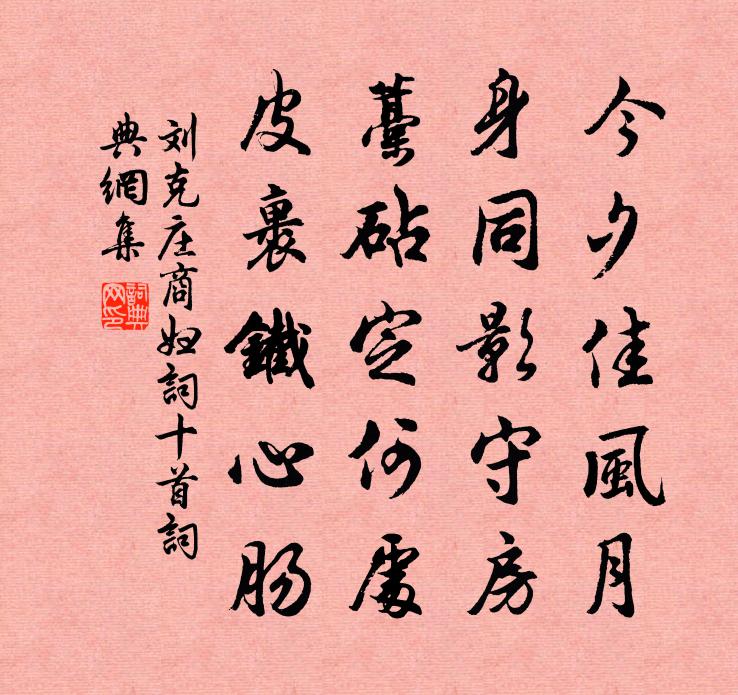 今夕佳風月
身同影守房
藁砧定何處
皮裹鐵心腸
刘克庄商妇詞十首詞
典網集
詞典
网印